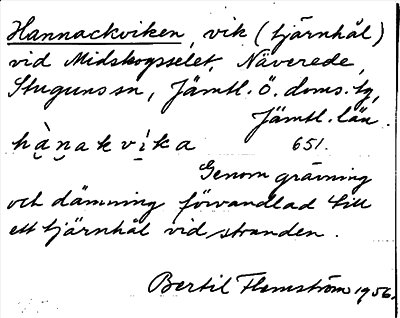 Hannackviken, vik (tjärnhål)
vid Midskogsselet, Näverede,
Stuguns sn, Jämtl. Ö. doms. tg,
Jämtl. län.
hànakvika 651.
Genom grävning
och dämning förvandlad till
ett tjärnhål vid stranden.
Bertil Flemström 1956.